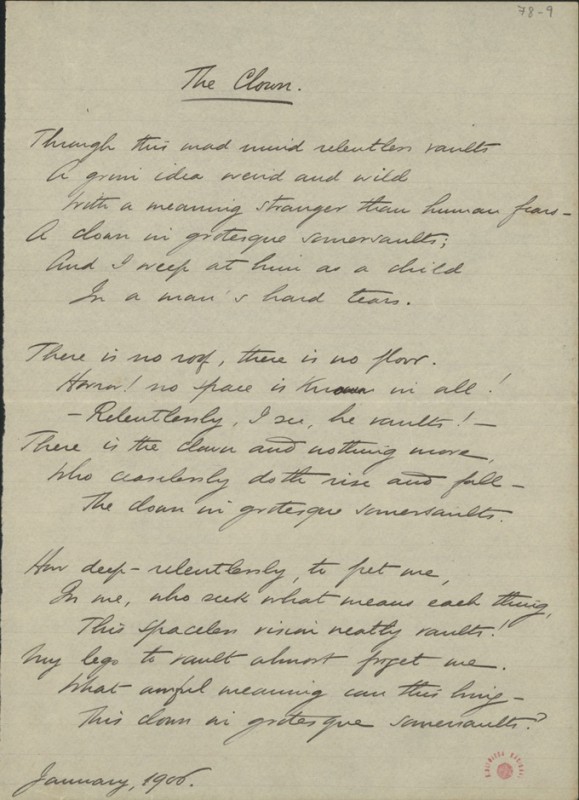 78-9
The Clown.
Through this mad mind relentless vaults
A grim idea weird and wild
With a meaning stranger than human fears –
A clown in grotesque somersaults;
And I weep at him as a child
In a man's hard tears.
There is no roof, there is no floor.
Horror! no space is known in all!
– Relentlessly, I see, he vaults! –
There is the clown and nothing more,
Who ceaselessly doth rise and fall –
The clown in grotesque somersaults.
How deep – relentlessly, to fret me,
In me, who seek what means each thing,
This spaceless vision neatly vaults!
My legs to vault almost forget me.
What awful meaning can this bring –
This clown in grotesque somersaults?
January, 1906.